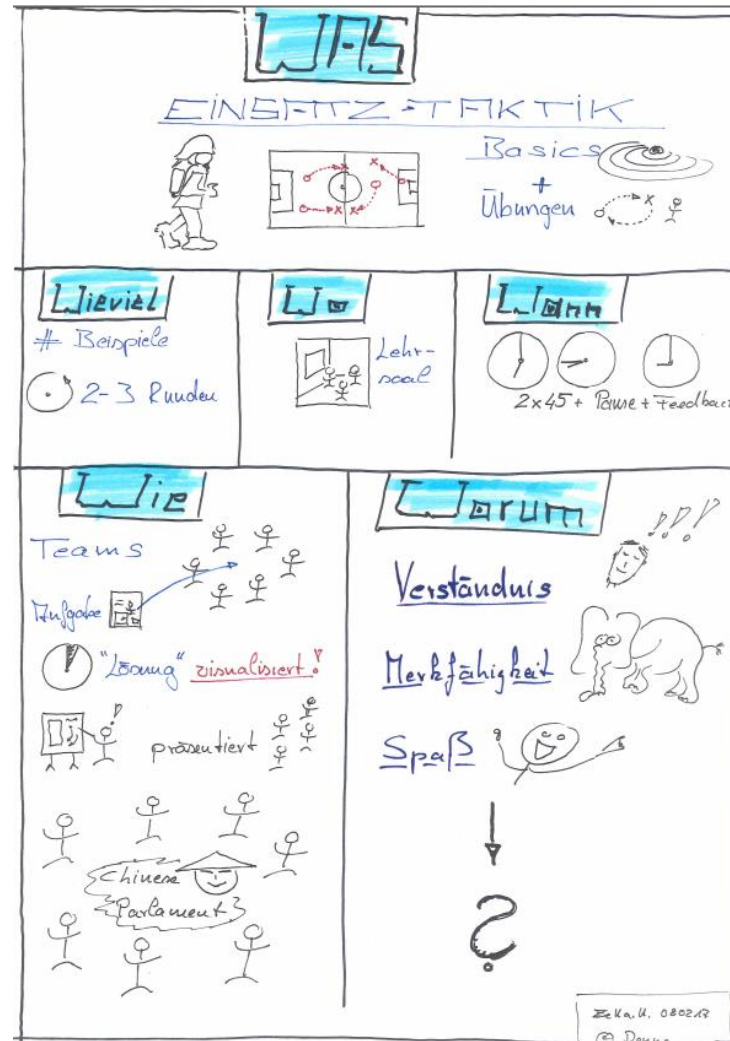 WAS
EINSATZ-TAKTIK
Basics
+
Übungen
Wieviel
# Beispiele
2-3 Runden
Wo
Lehr-
saal
Wann
2x45 + Pause + Feedback
Wie
Teams
Aufgabe
"Lösung" visualisiert!
präsentiert
Chinese
Parlament
Warum
!!!
Verständnis
Merkfähigkeit
Spaß
?
080217